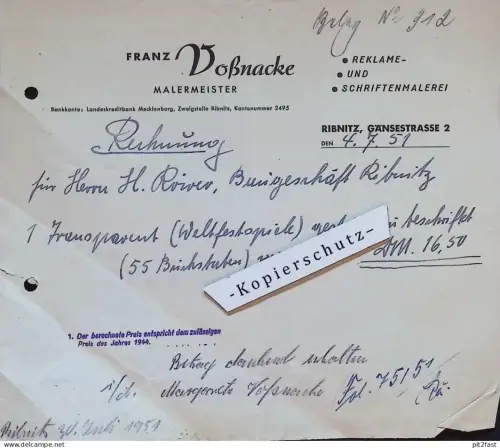 Beleg No 912
FRANZ Voßnacke
MALERMEISTER
• REKLAME-
• UND
• SCHRIFTENMALEREI
Bankkonto: Landeskreditbank Mecklenburg, Zweigstelle Ribnitz, Kontonummer 2495
RIBNITZ, GÄNSESTRASSE 2
DEN 4.7.51
Rechnung
für Herrn H. Baugeschäft Ribnitz
1 Transparent (Weltfestspiele) beschriftet
(55 Buchstaben) DM. 16,50
-Kopierschutz-
1. Der berechnete Preis entspricht dem zulässigen
Preis des Jahres 1944.
Betrag dankend erhalten
Margarete Voßnacke Fol. 75/51
Ribnitz 30. Juli 1951
www.delcampe.net
edited with pit2fast